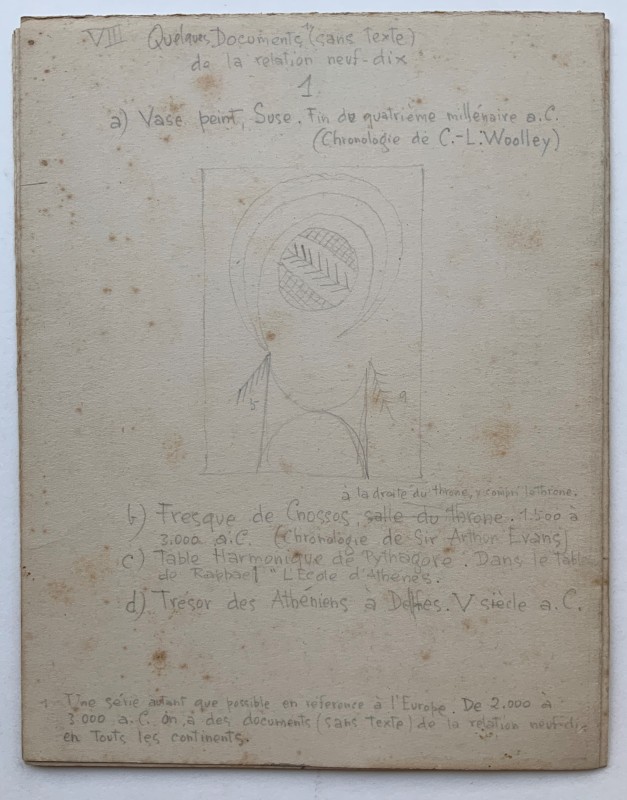 VIII Quelques Documents (sans texte)
de la relation neuf-dix
1
a) Vase peint, Suse. Fin du quatrième millénaire a.C.
(Chronologie de C.-L. Woolley)
5 9
à la droite du throne, y compri le throne.
b) Fresque de Cnossos, salle du throne. 1.500 à
3.000 a.C. (Chronologie de Sir Arthur Evans)
c) Table Harmonique de Pythagore. Dans le table
de Raphael "L'École d'Athènes.
d) Trésor des Athéniens à Delfes. V siècle a.C.
1 Une série autant que possible en reference à l'Europe. De 2.000 à
3.000 a.C. on à des documents (sans texte) de la relation neuf-dix
en touts les continents.